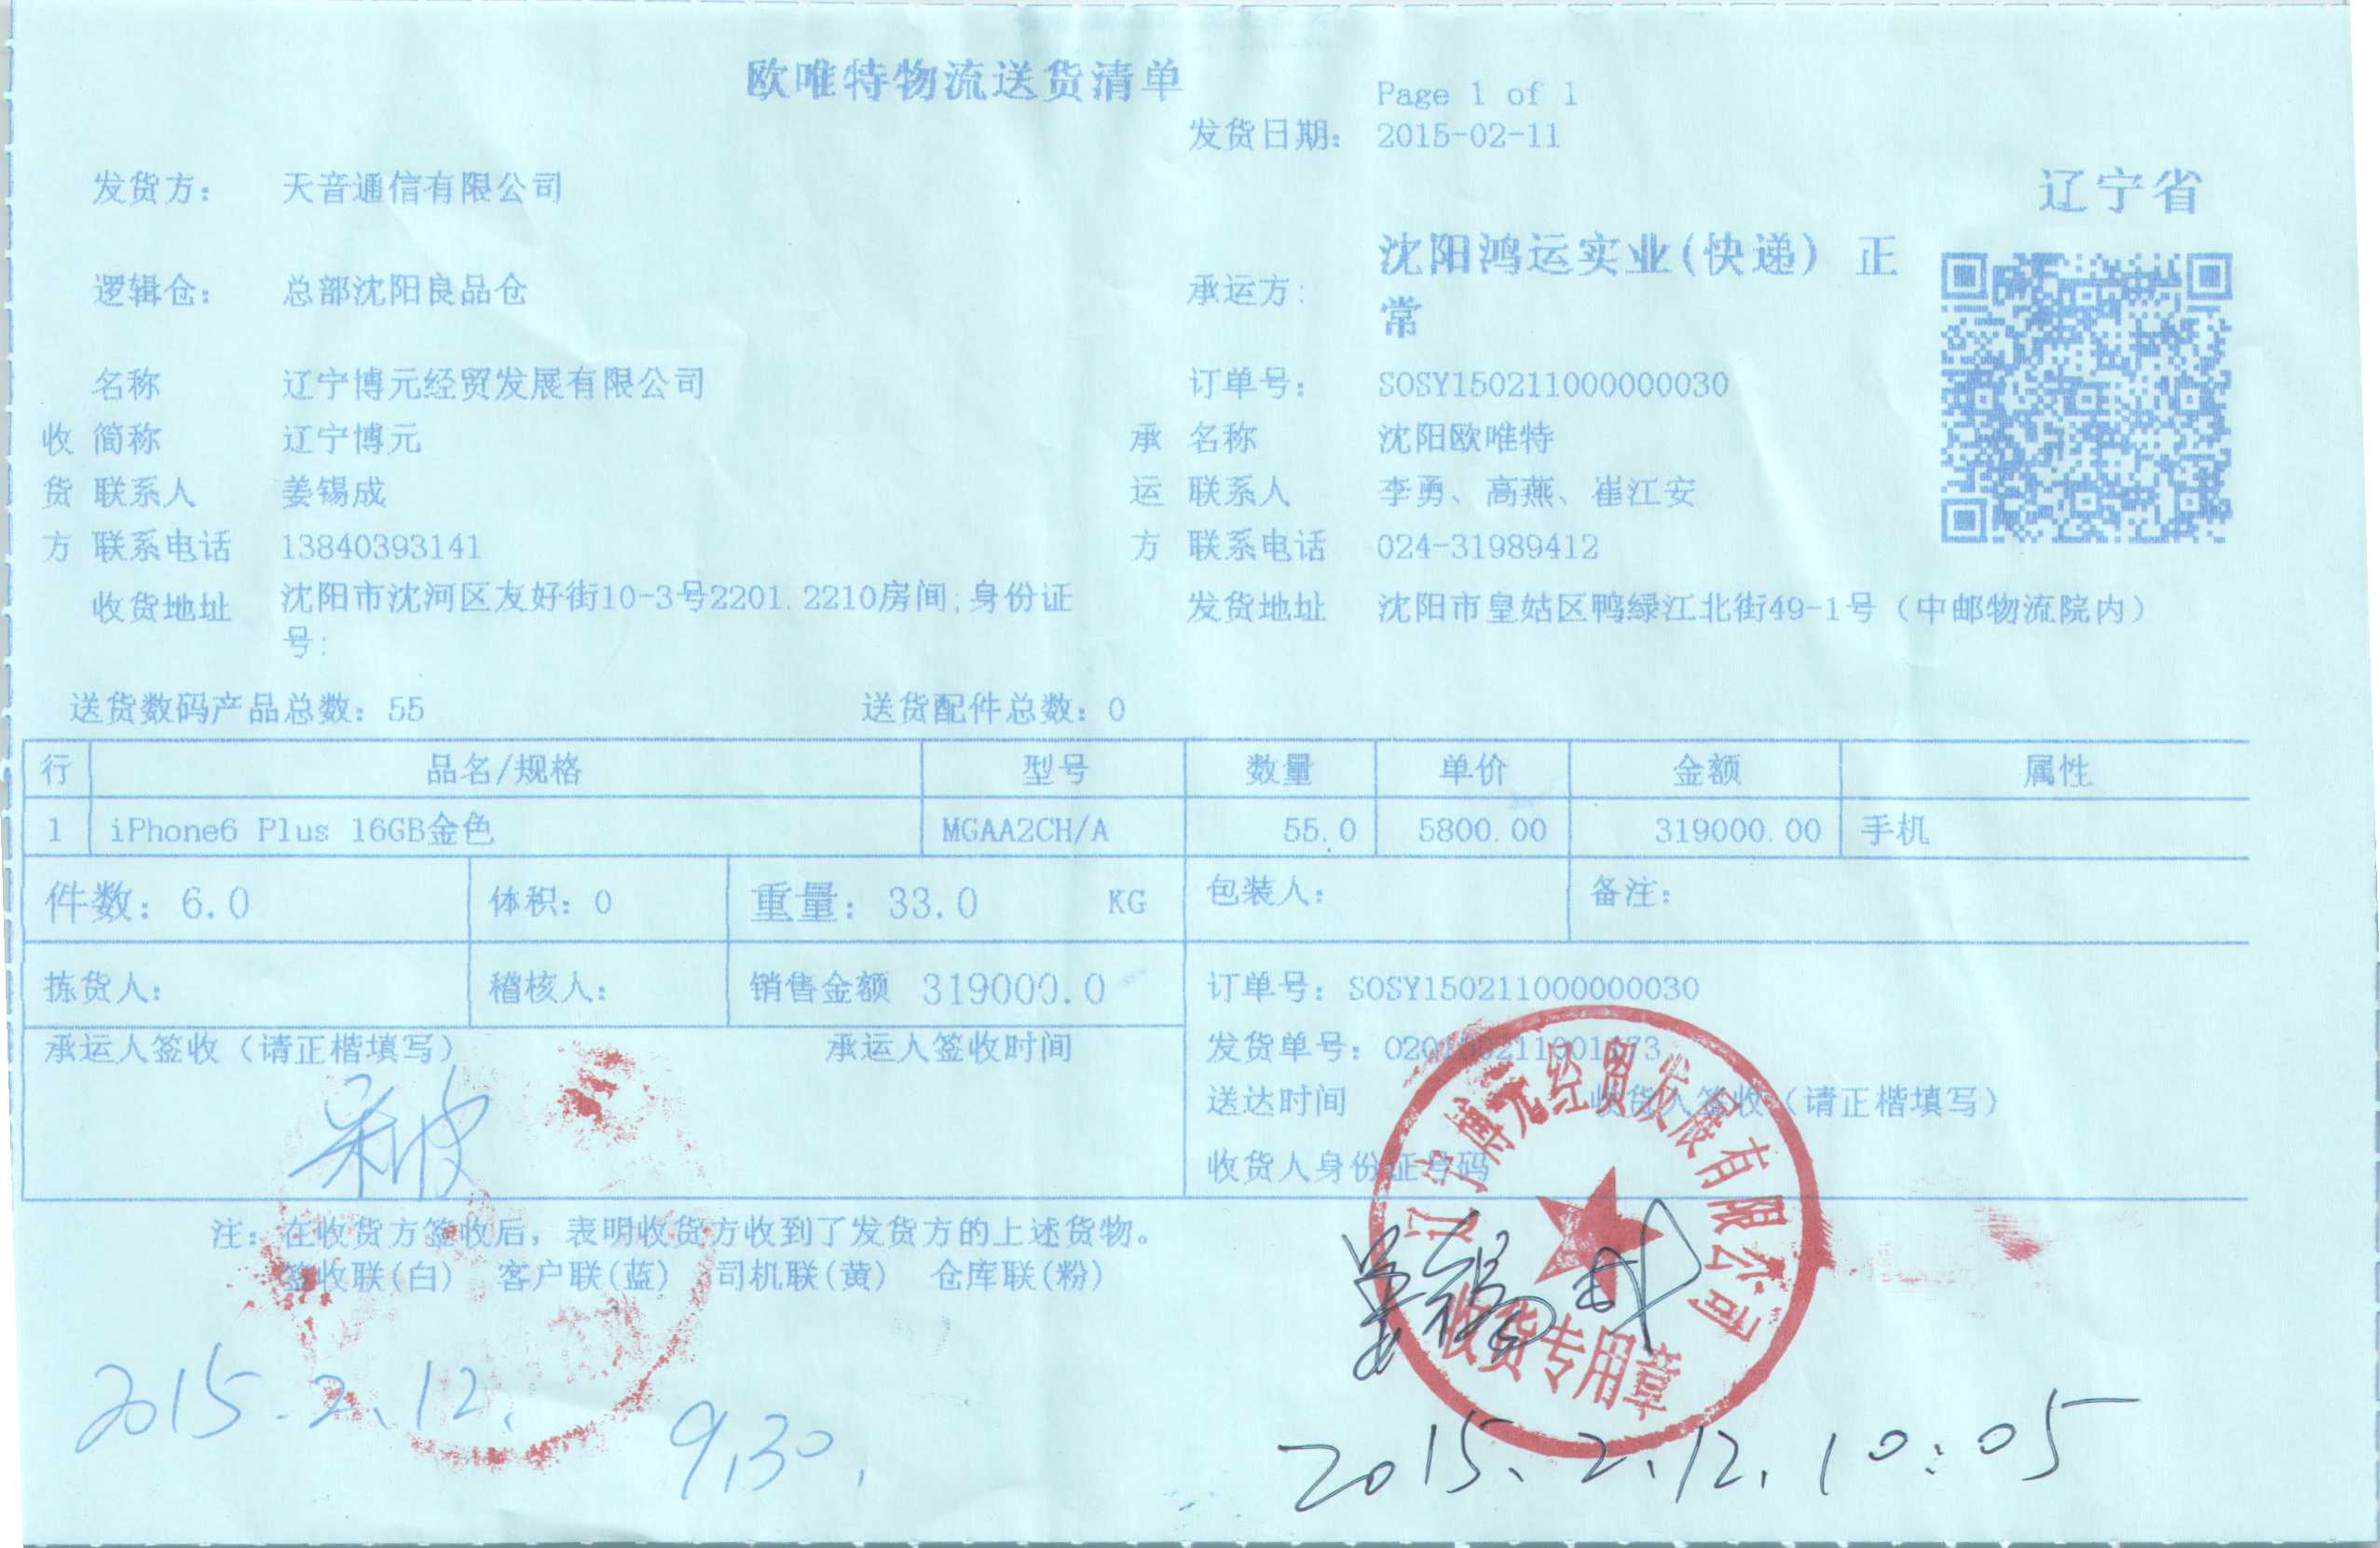 欧唯特物流送货清单
Page 1 of 1
发货日期： 2015-02-11
发货方： 天音通信有限公司
辽宁省
逻辑仓： 总部沈阳良品仓
承运方： 沈阳鸿运实业(快递) 正
常
名称 辽宁博元经贸发展有限公司 订单号： SOSY150211000000030
收 简称 辽宁博元 承 名称 沈阳欧唯特
货 联系人 姜锡成 运 联系人 李勇、高燕、崔江安
方 联系电话 13840393141 方 联系电话 024-31989412
收货地址 沈阳市沈河区友好街10-3号2201.2210房间;身份证
号：
发货地址 沈阳市皇姑区鸭绿江北街49-1号（中邮物流院内）
送货数码产品总数：55 送货配件总数：0
行 品名/规格 型号 数量 单价 金额 属性
1 iPhone6 Plus 16GB金色 MGAA2CH/A 55.0 5800.00 319000.00 手机
件数：6.0 体积：0 重量：33.0 KG 包装人： 备注：
拣货人： 稽核人： 销售金额 319000.0 订单号：SOSY150211000000030
承运人签收（请正楷填写） 承运人签收时间 发货单号：
送达时间 收货人签收（请正楷填写）
收货人身份证号码
辽宁博元经贸发展有限公司
收货专用章
姜锡成
注：在收货方签收后，表明收货方收到了发货方的上述货物。
签收联(白) 客户联(蓝) 司机联(黄) 仓库联(粉)
2015.2.12. 9.30.
2015.2.12.10:05